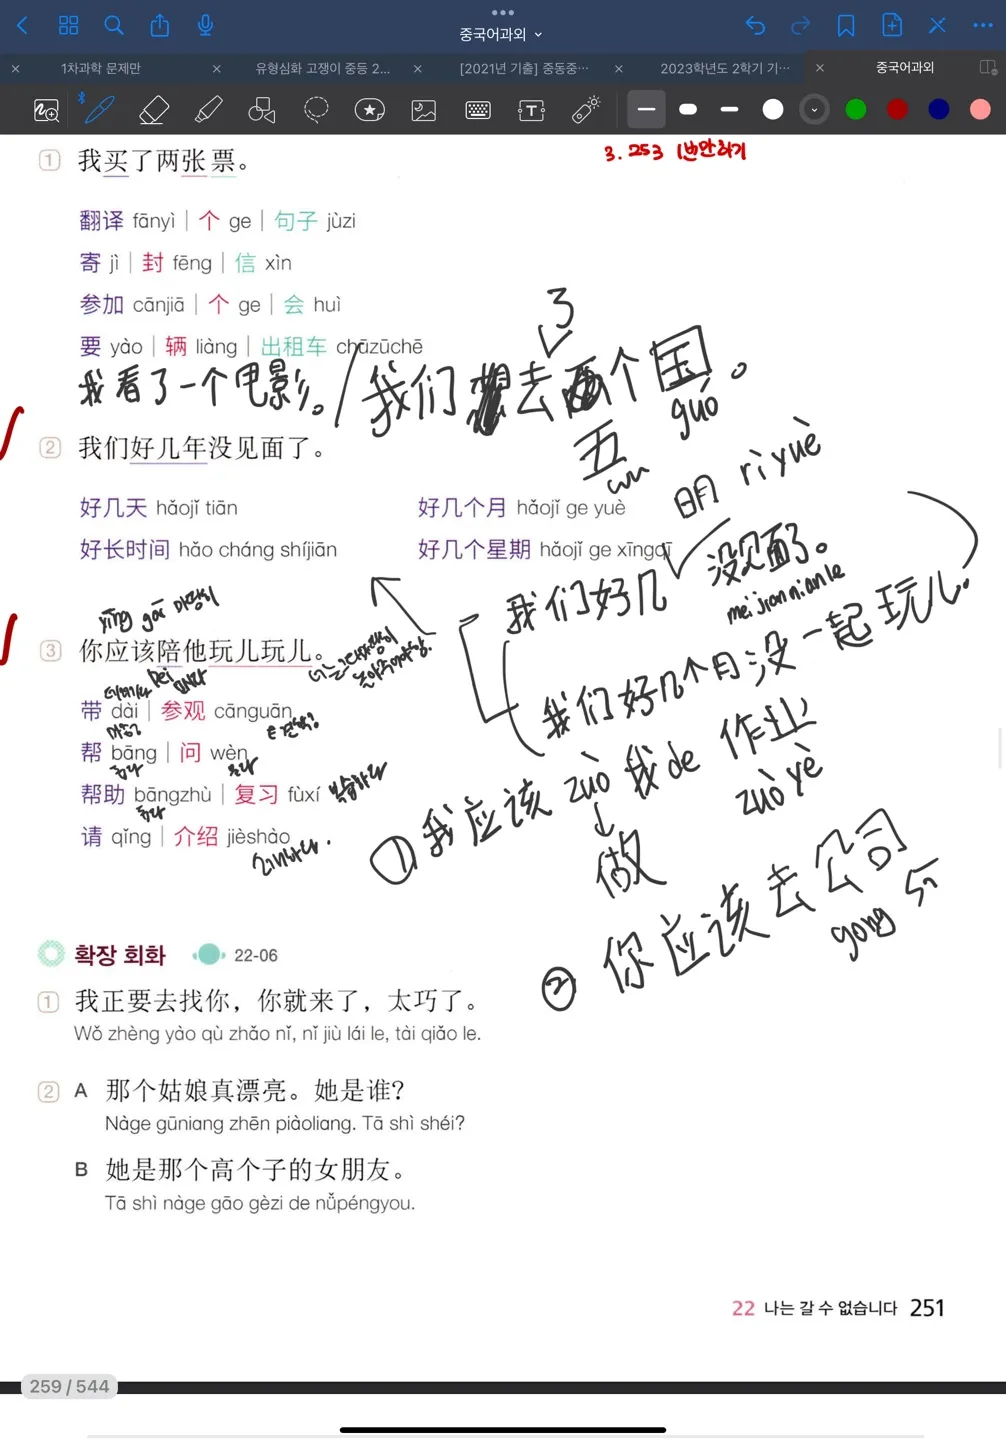 중국어과외
1차과학 문제만
유형심화 고쟁이 중등 2...
[2021년 기출] 중동중...
2023학년도 2학기 기...
중국어과외
3. 253 1번만하기
1 我买了两张票。
翻译 fānyì | 个 ge | 句子 jùzi
寄 jì | 封 fēng | 信 xìn
参加 cānjiā | 个 ge | 会 huì
要 yào | 辆 liàng | 出租车 chūzūchē
了
我看了一个电影。/ 我们去个国。
guó
五
wu
2 我们好几年没见面了。
明 rì yuè
好几天 hǎojǐ tiān
好几个月 hǎojǐ ge yuè
好长时间 hǎo cháng shíjiān
好几个星期 hǎojǐ ge xīngqī
我们好几 没见面了。
mei jian mian le
我们好几个月没一起玩儿.
yīng gāi 마땅히
3 你应该陪他玩儿玩儿。
pei
带 dài | 参观 cānguān
帮 bāng | 问 wèn
帮助 bāngzhù | 复习 fùxí 복습하다
请 qǐng | 介绍 jièshào
소개하다.
① 我应该 zuò 我 de 作业
zuò yè
做
② 你应该去公司
gong
확장 회화 22-06
1 我正要去找你，你就来了，太巧了。
Wǒ zhèng yào qù zhǎo nǐ, nǐ jiù lái le, tài qiǎo le.
2 A 那个姑娘真漂亮。她是谁？
Nàge gūniang zhēn piàoliang. Tā shì shéi?
B 她是那个高个子的女朋友。
Tā shì nàge gāo gèzi de nǚpéngyou.
22 나는 갈 수 없습니다 251
259 / 544